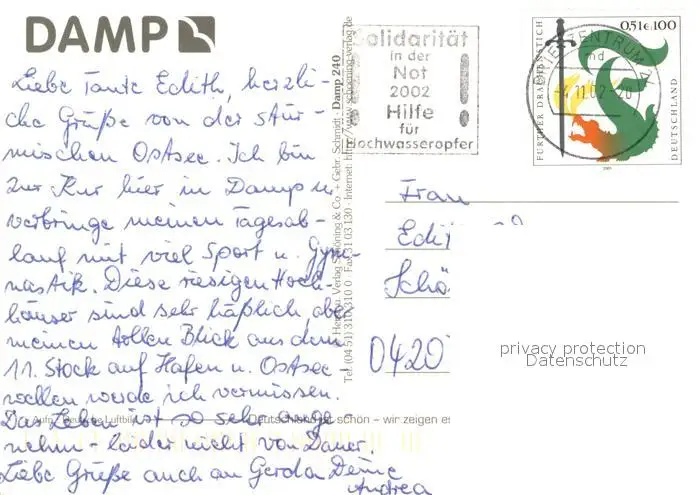 DAMP
Liebe Tante Edith, herzli-
che Grüße von der stür-
mischen Ostsee. Ich bin
zur Kur hier in Damp u.
verbringe meinen Tagesab-
lauf mit viel Sport u. Gym-
nastik. Diese riesigen Hoch-
häuser sind sehr häßlich, aber
meinen tollen Blick aus dem
11. Stock auf Hafen u. Ostsee
wellen werde ich vermissen.
Das Leben ist so sehr ange
nehm - leider nicht von Dauer.
Liebe Grüße auch an Gerda Deine
Andrea
Aufn.: Deutsche Luftbild
Deutschland ist schön – wir zeigen es
Herausg.: Verlag Schöning & Co + Gebr. Schmidt · Damp 240
Tel. (04 51) 310 310 Fax 31 03 130 · Internet: http://www.schoening-verlag.de
Solidarität
in der
Not
2002
Hilfe
für
Hochwasseropfer
BRIEFZENTRUM 24
md
-4.11.02-20
0,51€ 100
FURTHER DRACHENSTICH
DEUTSCHLAND
2001
Frau
Edi
Schö
0420
privacy protection
Datenschutz